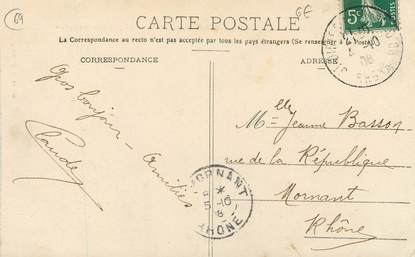 69
6E
CARTE POSTALE
La Correspondance au recto n'est pas acceptée par tous les pays étrangers (Se renseigner à la Poste)
CORRESPONDANCE
ADRESSE
5c
Gros bonjour - Amitiés
Claude
Mlle Jeanne Basson
rue de la République
Mornant
Rhône
MORNANT
5-10
RHONE